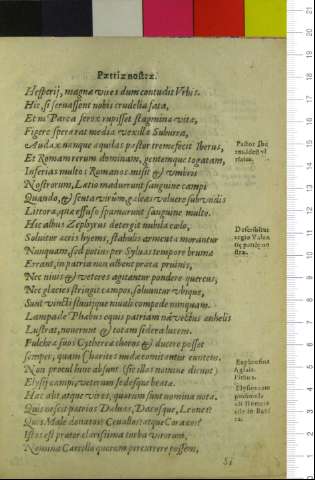 Patriæ nostræ.
Hesperij, magnæ vires dum contudit Vrbis.
Hic, si seruassent nobis crudelia fata,
Et ni Parca ferox rupisset stagmina vitæ,
Figere sperarat media vexilla Suburra,
Audax nanque aquilas pastor tremefecit Iberus,
Et Romam rerum dominam, gentemque togatam,
Inferias multos Romanos misit & vmbris
Nostrorum, Latio maduerunt sanguine campi
Quando, & scuta virûm galeas voluere sub vndis
Littora, quæ effuso spumarunt sanguine multo.
Hic albus Zephyrus detergit nubila cælo,
Soluitur acris hyems, stabulis armenta morantur
Nunquam, sed potius per syluas tempore brumæ
Errant, in patria non albent prata pruinis,
Nec niuis & veteres agitantur pondere quercus,
Nec glacies stringit campos, soluuntur vbique,
Sunt vincti fluuijque niuali compede nunquam.
Lampade Phœbus equis patriam nã vectus anhelis
Lustrat, nouerunt & totam sidera lucem.
Pulchra suos Cytherea choros & ducere posset
Semper, quam Charites nudæ comitantur euntem.
Non procul hinc absunt (sic illos nomine dicunt)
Elysij campi, veterum sedesque beatæ.
Hac alit atque viros, quorum sunt nomina nota.
Quis nescit patrios Dalmos, Dacosque, Leones?
Quos Male donatos Ceuallos atque Coracos?
Istos est præter clarissima turba virorum,
Nomina Castello quorum percurrere possem,
Si
Pastor Ibe
Describitur
regio
Euphrosine
Aglaia.